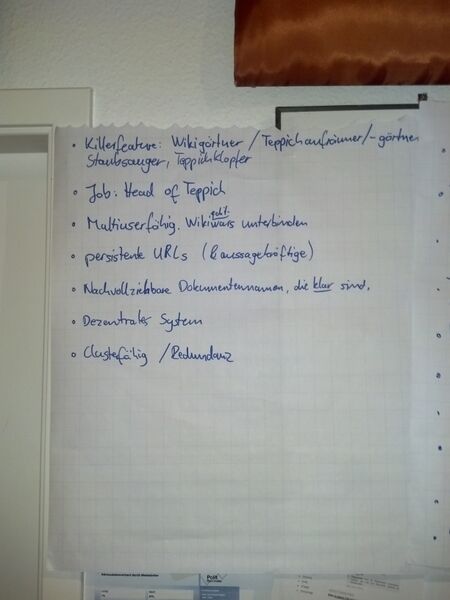 • Killerfeature: Wikigärtner / Teppichaufräumer/-gärtner
Staubsauger, Teppichklopfer
• Job: Head of Teppich
• Multiuserfähig. Wikiwars ggf. unterbinden
• persistente URLs (& aussagekräftige)
• Nachvollziehbare Dokumentennamen, die klar sind.
• Dezentrales System
• Clusterfähig / Redundanz
Polit